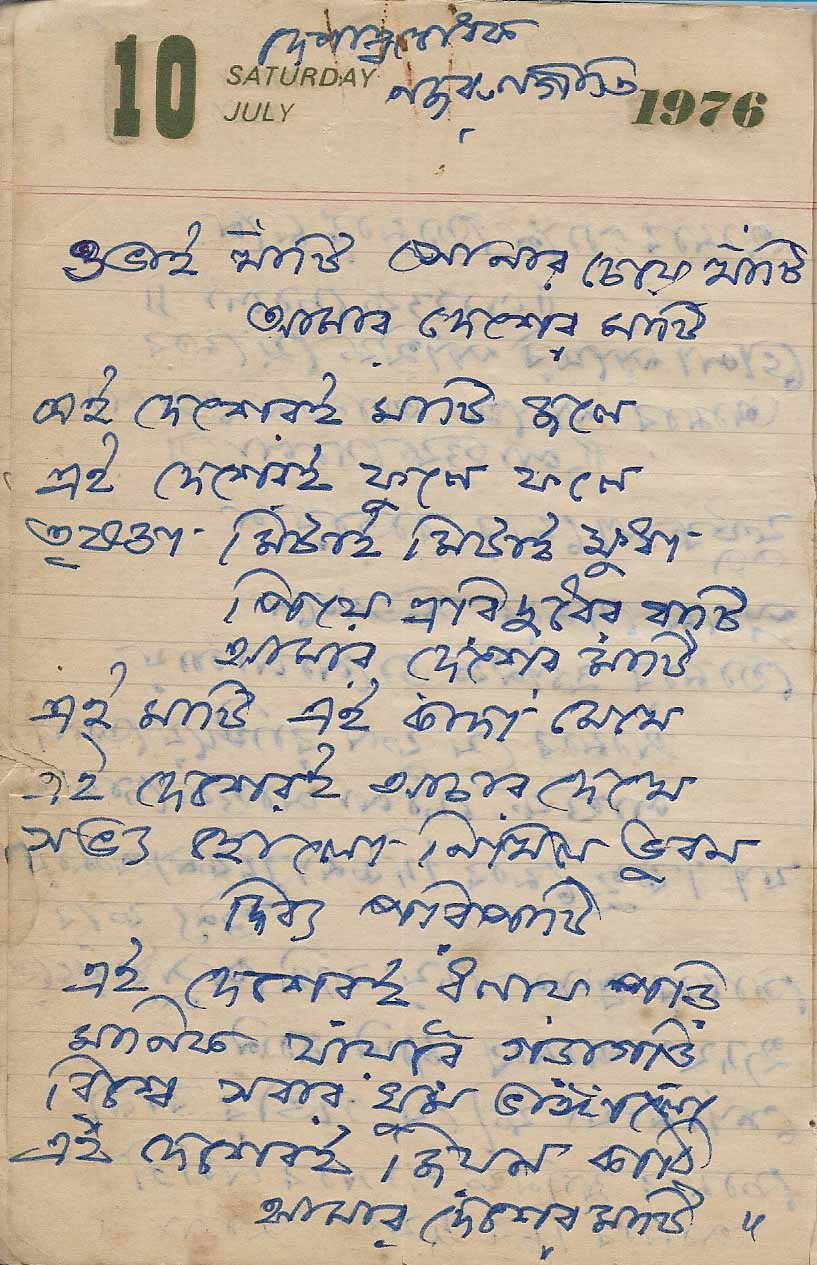 10
SATURDAY
JULY
1976
দেশাত্মবোধক
নজরুলগীতি
ও ভাই খাঁটি সোনার চেয়ে খাঁটি
আমার দেশের মাটি
এই দেশেরই মাটি জলে
এই দেশেরই ফুলে ফলে
তৃষ্ণা মিটাই মিটাই ক্ষুধা
পিয়ে এরি দুধের বাটি
আমার দেশের মাটি
এই মাটি এই কাদা মেখে
এই দেশেরই আচার দেখে
সভ্য হোলো নিখিল ভুবন
দিব্য পরিপাটি
এই দেশেরই ধূলায় পড়ি
মানিক যায়রে গড়াগড়ি
বিশ্বে সবার ঘুম ভাঙ্গালো
এই দেশেরই জিয়ন কাঠি
আমার দেশের মাটি